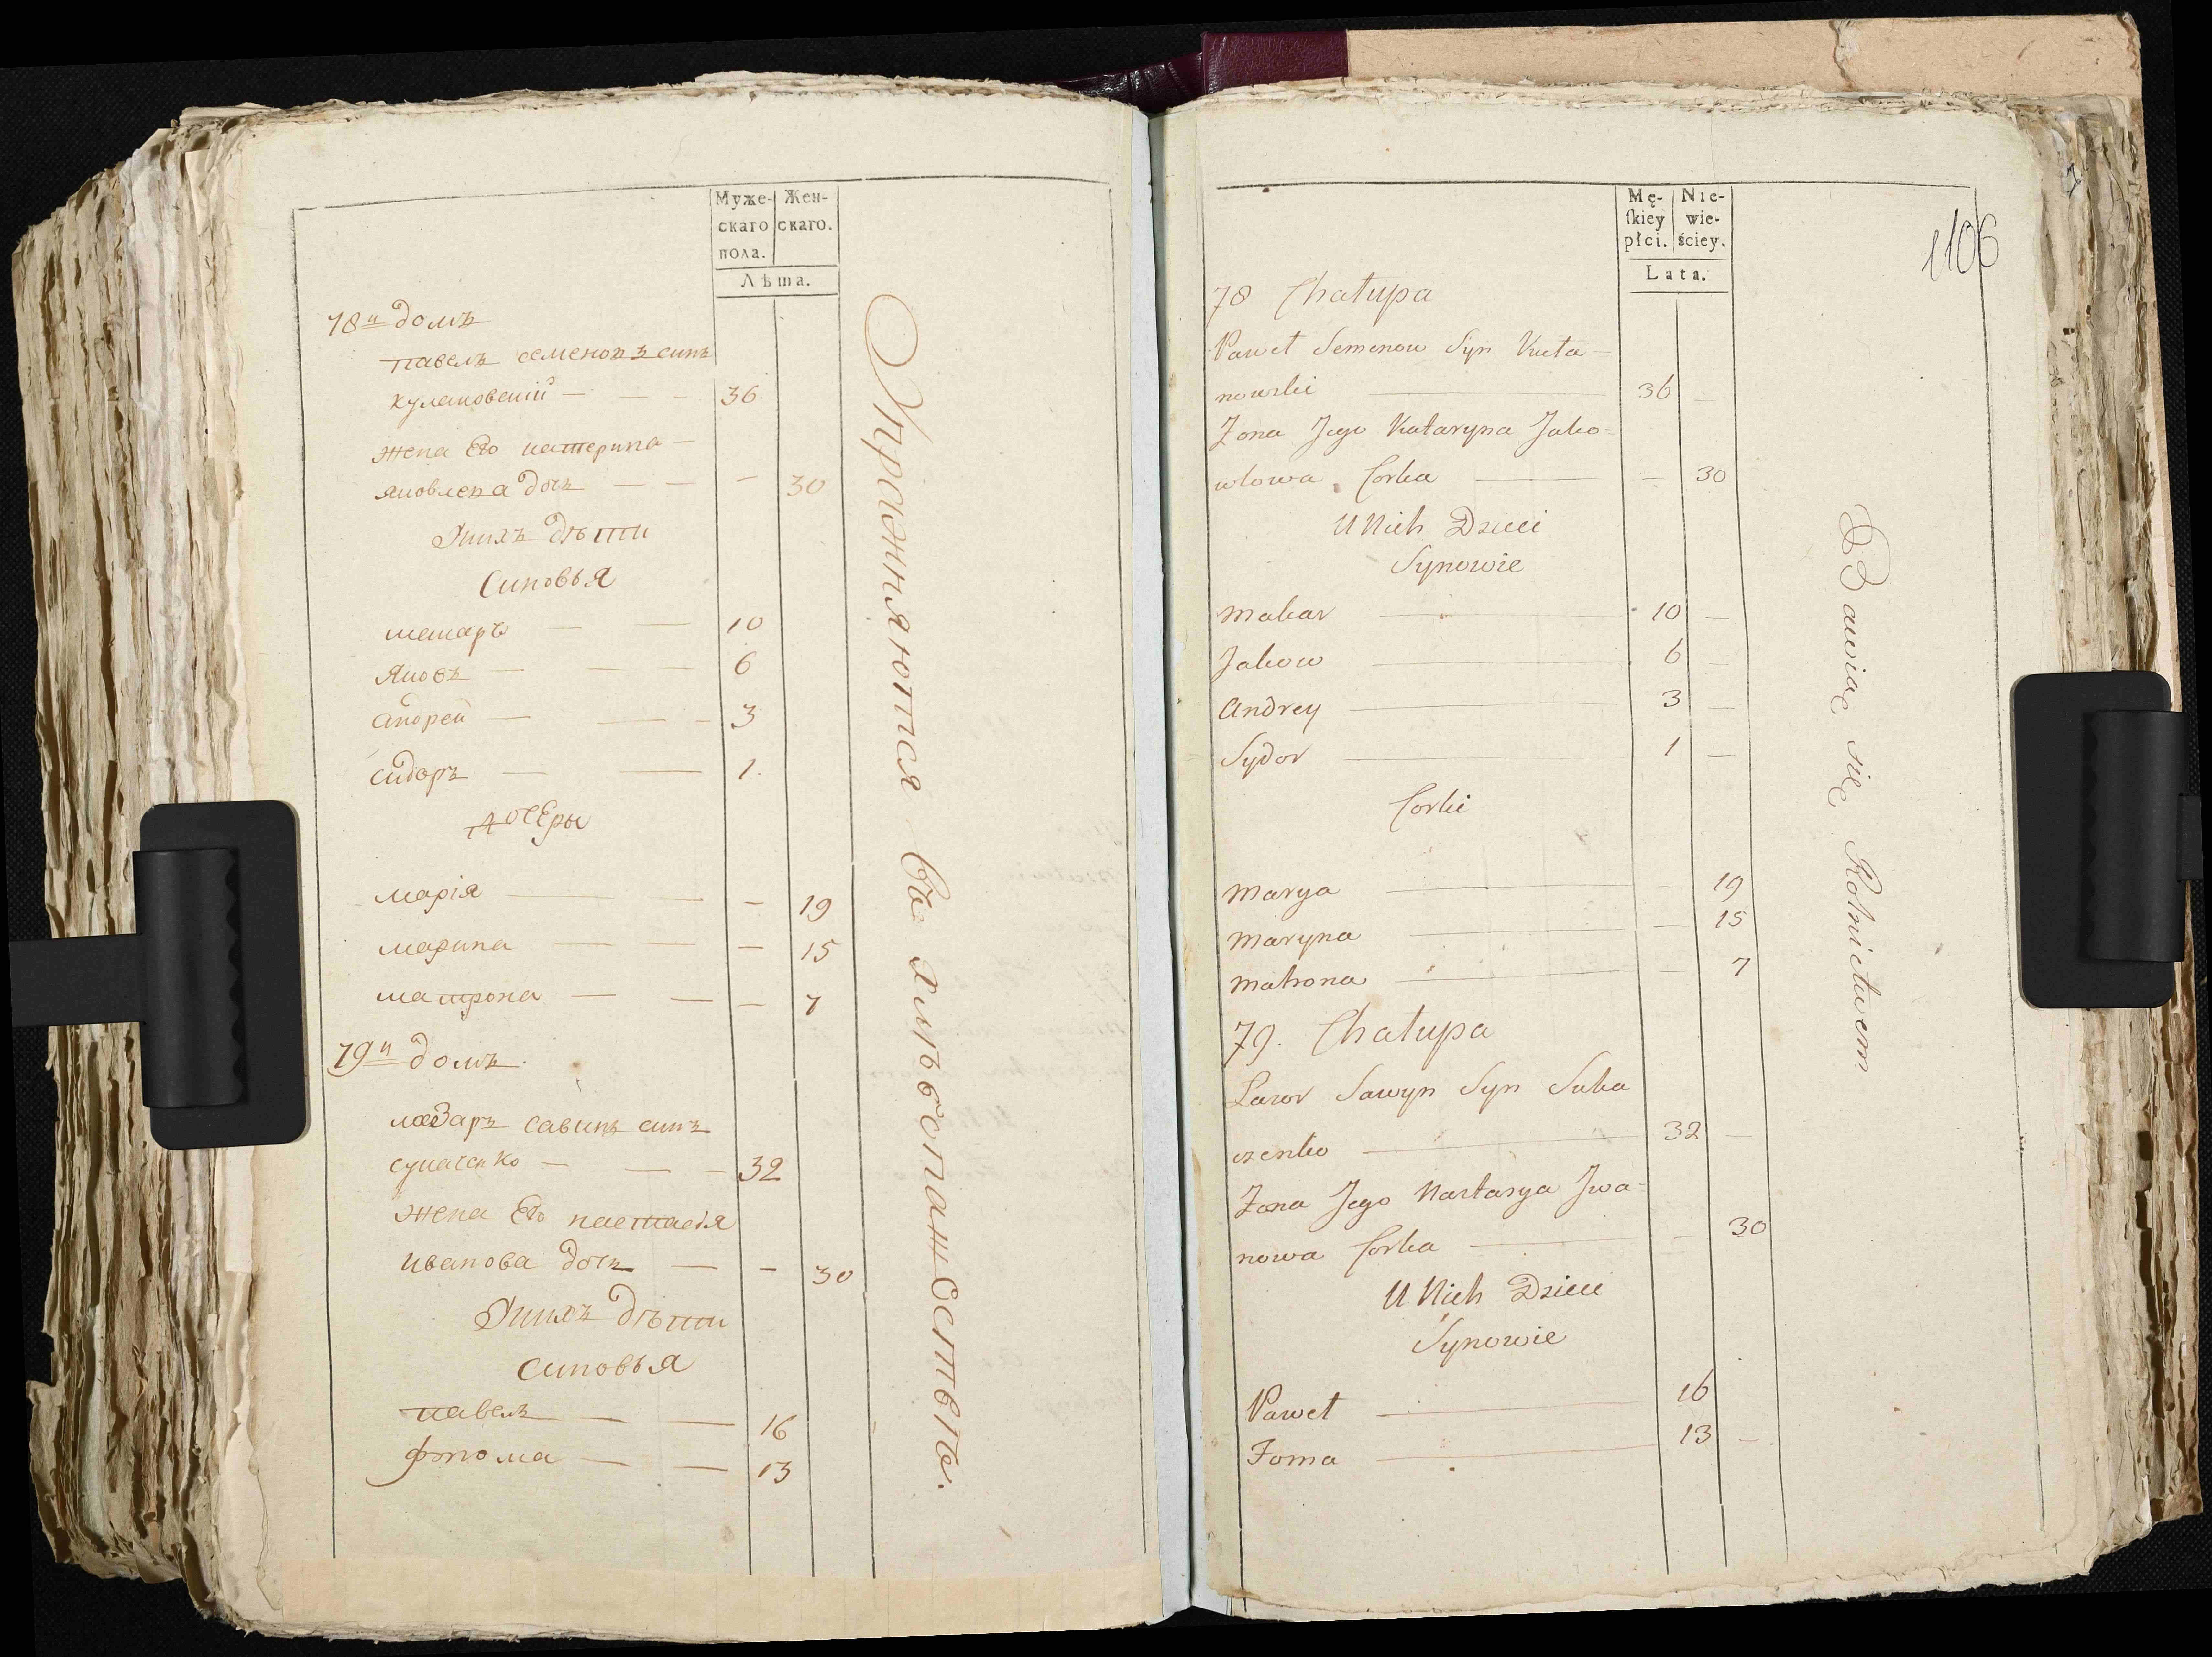 Муже-
скаго
пола.
Жен-
скаго.
Лѣта.
78й домъ
павелъ семеновъ синъ
кулановский — 36
жена Его катерина —
яковлева дочь — 30
Унихъ дѣти
Синовья
макаръ — 10
яковъ — 6
андрей — 3
сидоръ — 1.
дочеры
марія — 19
марина — 15
матрона — 7
79й домъ
лазаръ савинъ синъ
сукаченко — 32
жена Его настасія
иванова дочь — 30
Унихъ дѣти
синовья
павелъ — 16
фома — 13
Упражняются въ хлѣбопашествѣ.
Mę-
ſkiey
płci.
Nie-
wie-
ściey.
Lata.
1106
78 Chałupa
Paweł Semenow Syn Kuła-
nowski — 36 —
Żona Jego Kataryna Jako=
wlowa Corka — 30
U Nich Dzieci
Synowie
Makar — 10 —
Jakow — 6 —
Andrey — 3 —
Sydor — 1 —
Corki
Marya — 19
Maryna — 15
Matrona — 7
79. Chałupa
Lazor Sawyn Syn Suka
czenko — 32 —
Żona Jego Nastasya Jwa-
nowa Corka — 30
U Nich Dzieci
Synowie
Paweł — 16
Foma — 13 —
Bawiąc się Rolnictwem